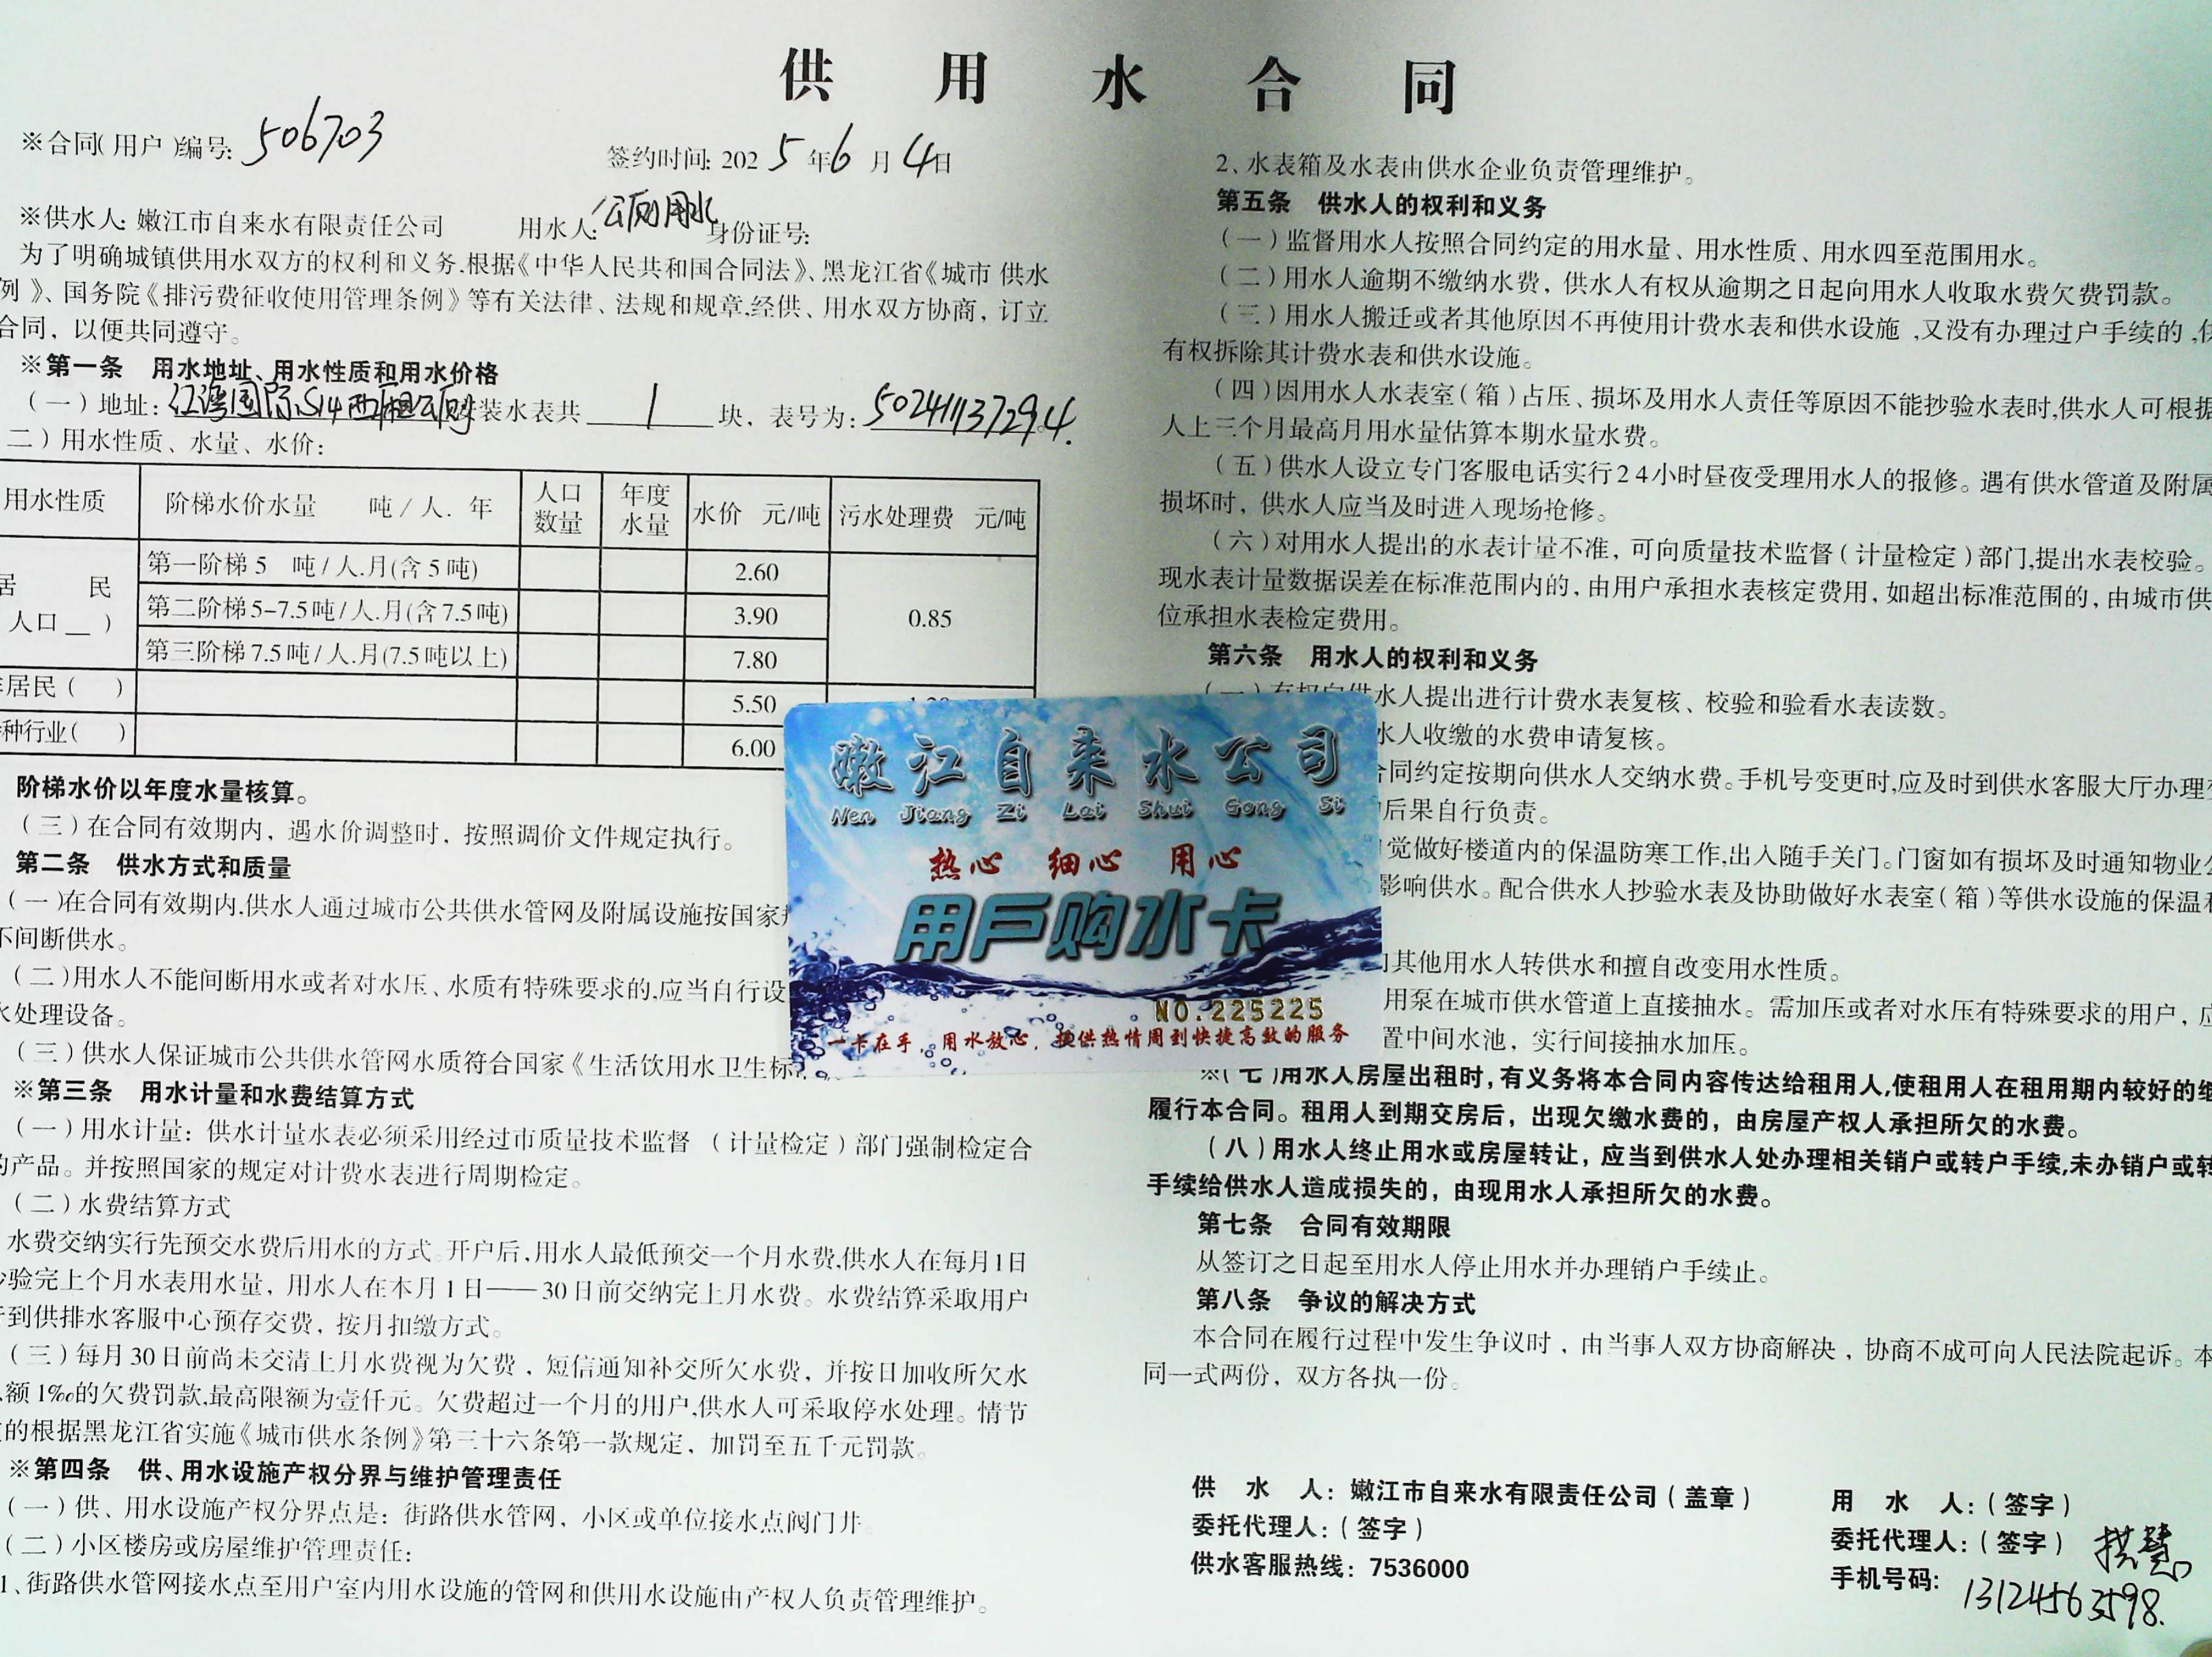 供用水合同
※合同(用户)编号: 506703
签约时间: 2025年6月4日
※供水人: 嫩江市自来水有限责任公司 用水人: 公厕用水 身份证号:
为了明确城镇供用水双方的权利和义务.根据《中华人民共和国合同法》、黑龙江省《城市 供水
例》、国务院《排污费征收使用管理条例》等有关法律、法规和规章,经供、用水双方协商，订立
合同，以便共同遵守。
※第一条 用水地址、用水性质和用水价格
(一)地址: 江湾国际S14西厢公厕 装水表共 1 块，表号为:
二)用水性质、水量、水价:
用水性质 阶梯水价水量 吨/人. 年 人口数量 年度水量 水价 元/吨 污水处理费 元/吨
居 民 第一阶梯 5 吨/人.月(含 5 吨) 2.60
人口__) 第二阶梯 5-7.5 吨/人.月(含 7.5 吨) 3.90 0.85
第三阶梯 7.5 吨/人.月(7.5 吨以上) 7.80
居民( ) 5.50
种行业( ) 6.00
阶梯水价以年度水量核算。
(三)在合同有效期内，遇水价调整时，按照调价文件规定执行。
第二条 供水方式和质量
(一)在合同有效期内,供水人通过城市公共供水管网及附属设施按国家
不间断供水。
(二)用水人不能间断用水或者对水压、水质有特殊要求的,应当自行设
水处理设备。
(三)供水人保证城市公共供水管网水质符合国家《生活饮用水卫生标
※第三条 用水计量和水费结算方式
(一)用水计量：供水计量水表必须采用经过市质量技术监督 (计量检定)部门强制检定合
的产品。并按照国家的规定对计费水表进行周期检定。
(二)水费结算方式
水费交纳实行先预交水费后用水的方式。开户后,用水人最低预交一个月水费,供水人在每月1日
验完上个月水表用水量，用水人在本月 1 日——30 日前交纳完上月水费。水费结算采取用户
到供排水客服中心预存交费，按月扣缴方式。
(三)每月 30 日前尚未交清上月水费视为欠费，短信通知补交所欠水费，并按日加收所欠水
额 1‰的欠费罚款,最高限额为壹仟元。欠费超过一个月的用户,供水人可采取停水处理。情节
的根据黑龙江省实施《城市供水条例》第三十六条第一款规定，加罚至五千元罚款。
※第四条 供、用水设施产权分界与维护管理责任
(一)供、用水设施产权分界点是：街路供水管网，小区或单位接水点阀门井
(二)小区楼房或房屋维护管理责任:
1、街路供水管网接水点至用户室内用水设施的管网和供用水设施由产权人负责管理维护。
2、水表箱及水表由供水企业负责管理维护。
第五条 供水人的权利和义务
(一)监督用水人按照合同约定的用水量、用水性质、用水四至范围用水。
(二)用水人逾期不缴纳水费，供水人有权从逾期之日起向用水人收取水费欠费罚款。
(三)用水人搬迁或者其他原因不再使用计费水表和供水设施,又没有办理过户手续的,供
有权拆除其计费水表和供水设施。
(四)因用水人水表室(箱)占压、损坏及用水人责任等原因不能抄验水表时,供水人可根据
人上三个月最高月用水量估算本期水量水费。
(五)供水人设立专门客服电话实行24小时昼夜受理用水人的报修。遇有供水管道及附属
损坏时，供水人应当及时进入现场抢修。
(六)对用水人提出的水表计量不准，可向质量技术监督(计量检定)部门,提出水表校验。
现水表计量数据误差在标准范围内的，由用户承担水表核定费用，如超出标准范围的，由城市供
位承担水表检定费用。
第六条 用水人的权利和义务
(一)有权向供水人提出进行计费水表复核、校验和验看水表读数。
水人收缴的水费申请复核。
合同约定按期向供水人交纳水费。手机号变更时,应及时到供水客服大厅办理
后果自行负责。
觉做好楼道内的保温防寒工作,出入随手关门。门窗如有损坏及时通知物业公
影响供水。配合供水人抄验水表及协助做好水表室(箱)等供水设施的保温
其他用水人转供水和擅自改变用水性质。
用泵在城市供水管道上直接抽水。需加压或者对水压有特殊要求的用户，应
置中间水池，实行间接抽水加压。
※(七)用水人房屋出租时,有义务将本合同内容传达给租用人,使租用人在租用期内较好的继
履行本合同。租用人到期交房后，出现欠缴水费的，由房屋产权人承担所欠的水费。
(八)用水人终止用水或房屋转让，应当到供水人处办理相关销户或转户手续,未办销户或转
手续给供水人造成损失的，由现用水人承担所欠的水费。
第七条 合同有效期限
从签订之日起至用水人停止用水并办理销户手续止。
第八条 争议的解决方式
本合同在履行过程中发生争议时，由当事人双方协商解决，协商不成可向人民法院起诉。本
同一式两份，双方各执一份。
供 水 人：嫩江市自来水有限责任公司(盖章)
委托代理人：(签字)
供水客服热线：7536000
用 水 人：(签字)
委托代理人：(签字)
手机号码： 13124563598.
嫩江自来水公司
Nen Jiang Zi Lai Shui Gong Si
热心 细心 用心
用户购水卡
NO.225225
一卡在手，用水放心，提供热情周到快捷高效的服务